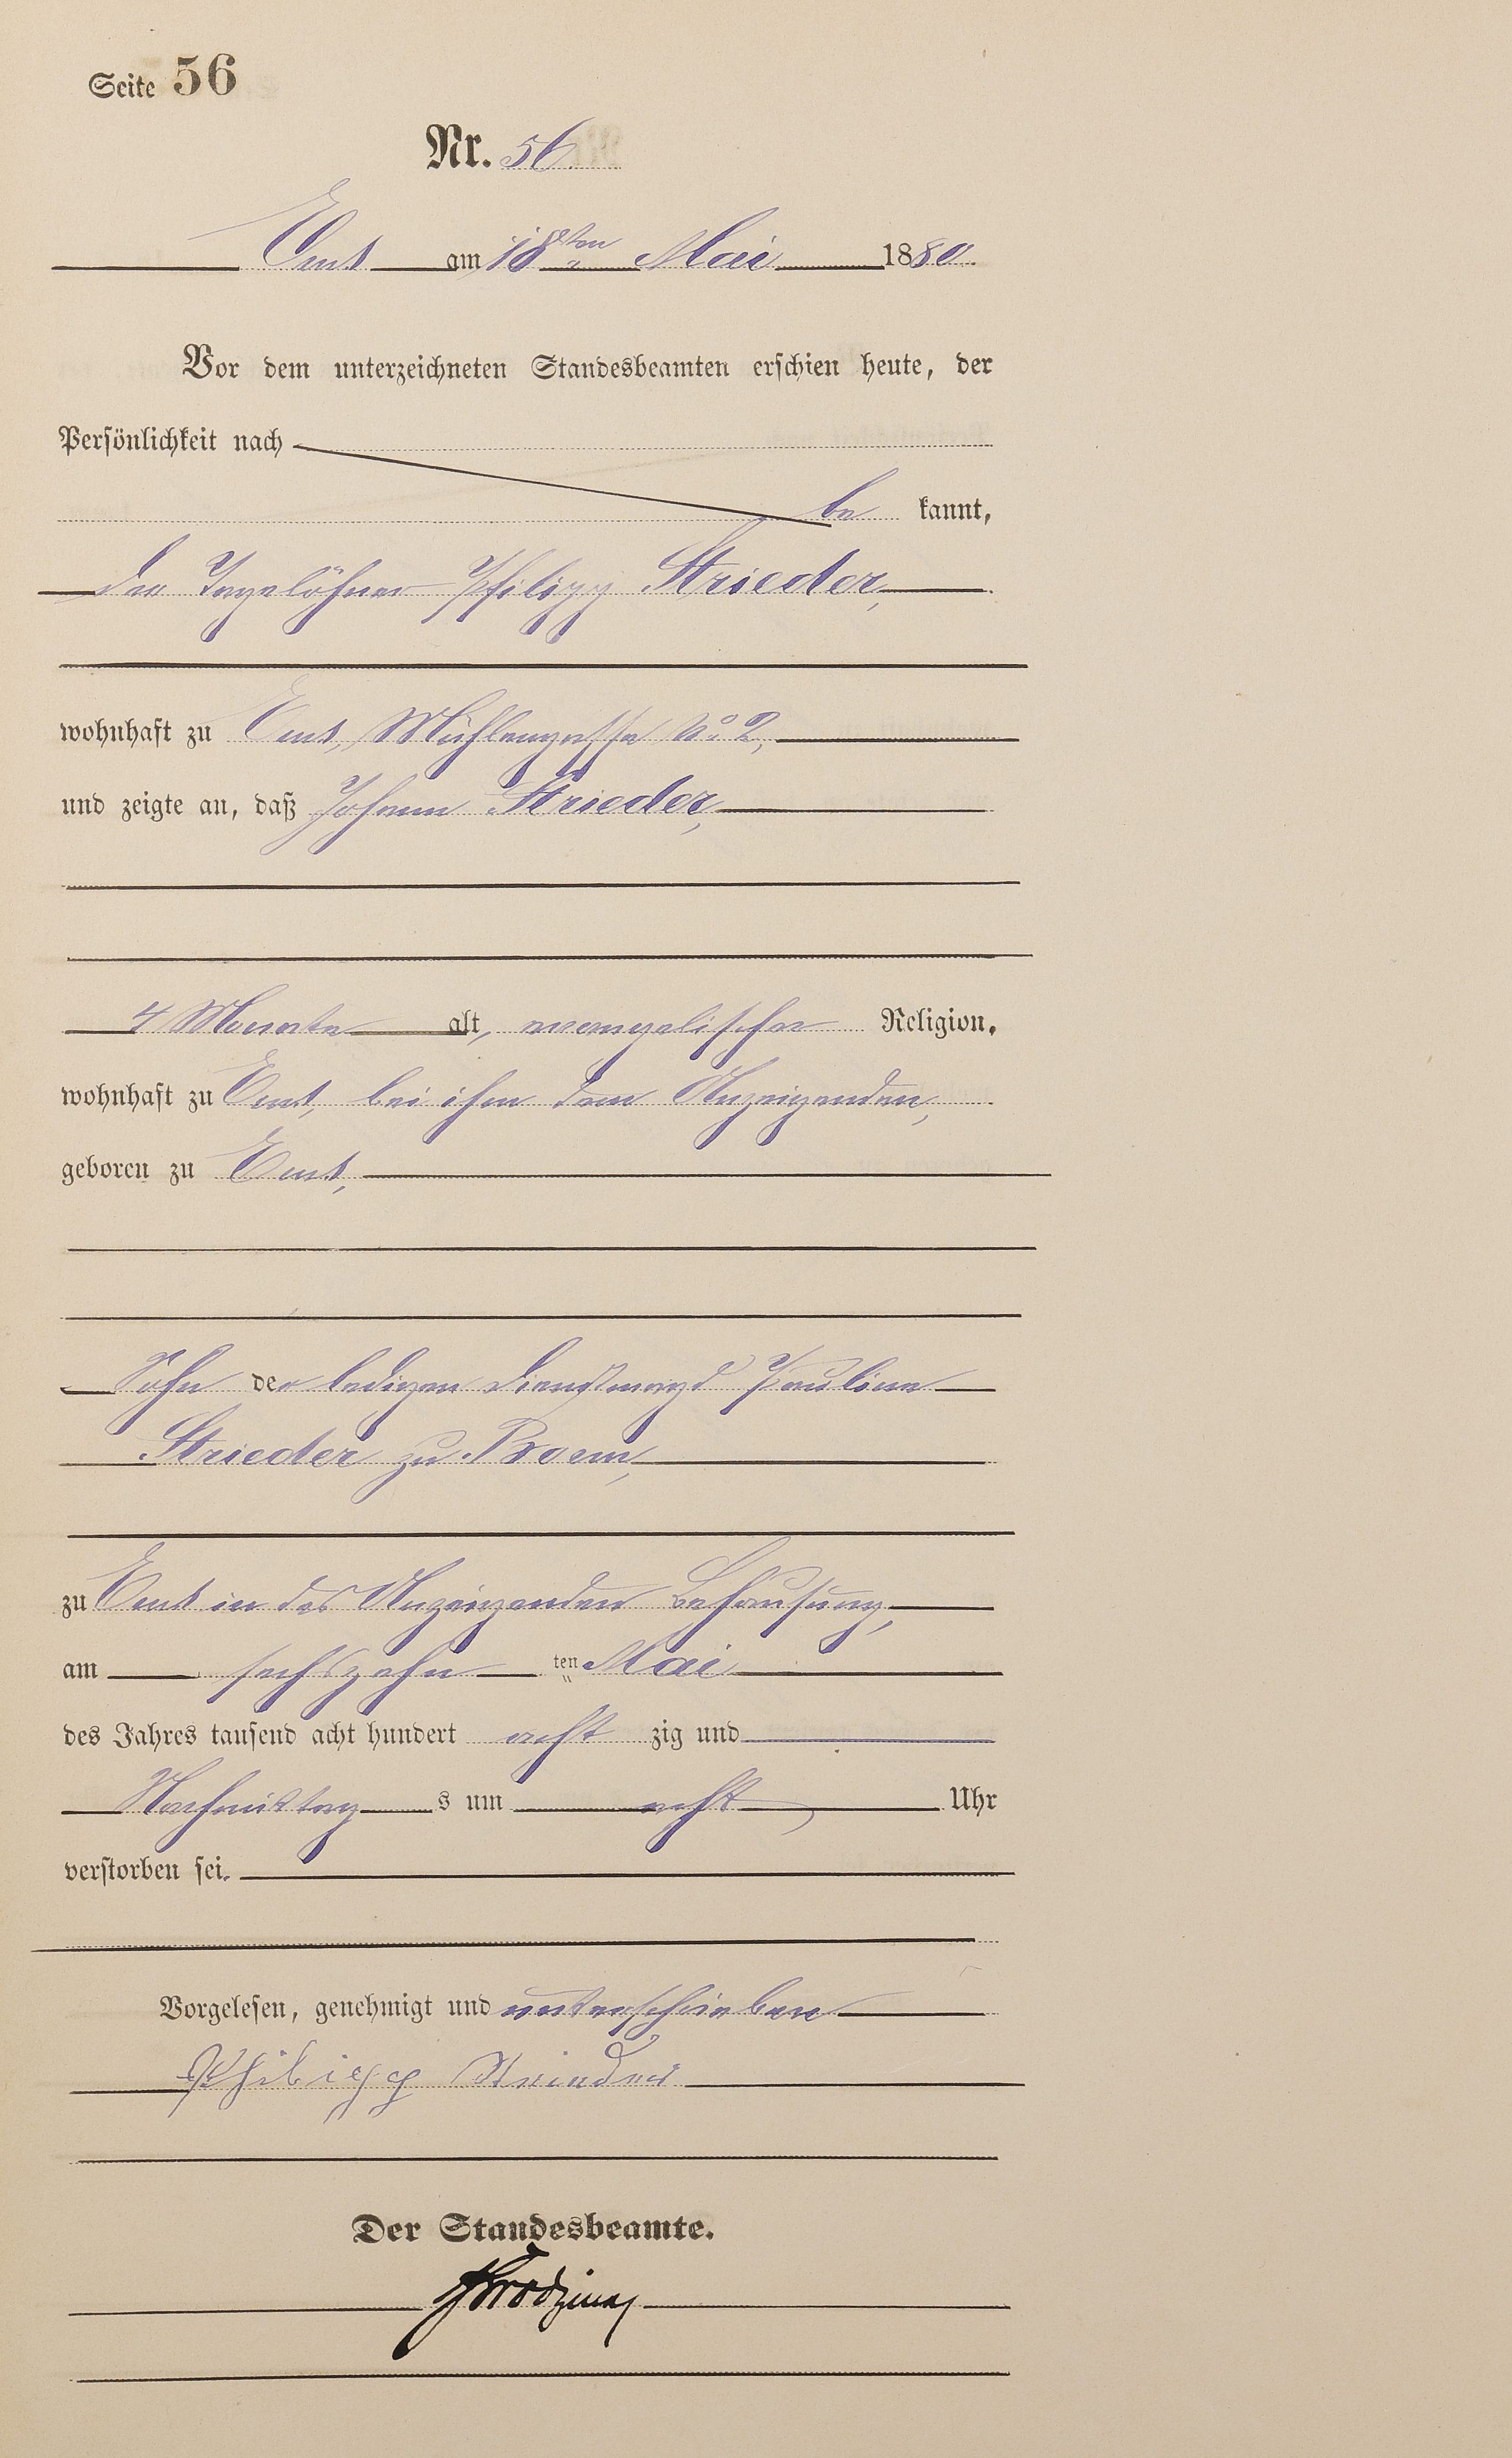 Seite 56
Nr. 56
Ems am 18ten Mai 1880.
Vor dem unterzeichneten Standesbeamten erschien heute, der
Persönlichkeit nach
be kannt,
der Tagelöhner Philipp Strieder,
wohnhaft zu Ems, Mühlengasse No. 2,
und zeigte an, daß Johann Strieder,
4 Monate alt, evangelischer Religion,
wohnhaft zu Ems, bei ihm dem Anzeigenden,
geboren zu Ems,
Sohn der ledigen Dienstmagd Pauline
Strieder zu
zu Ems in des Anzeigenden Behausung,
am sechszehn ten Mai
des Jahres tausend acht hundert acht zig und
Nachmittag s um acht Uhr
verstorben sei.
Vorgelesen, genehmigt und unterschrieben
Philipp Strieder
Der Standesbeamte.